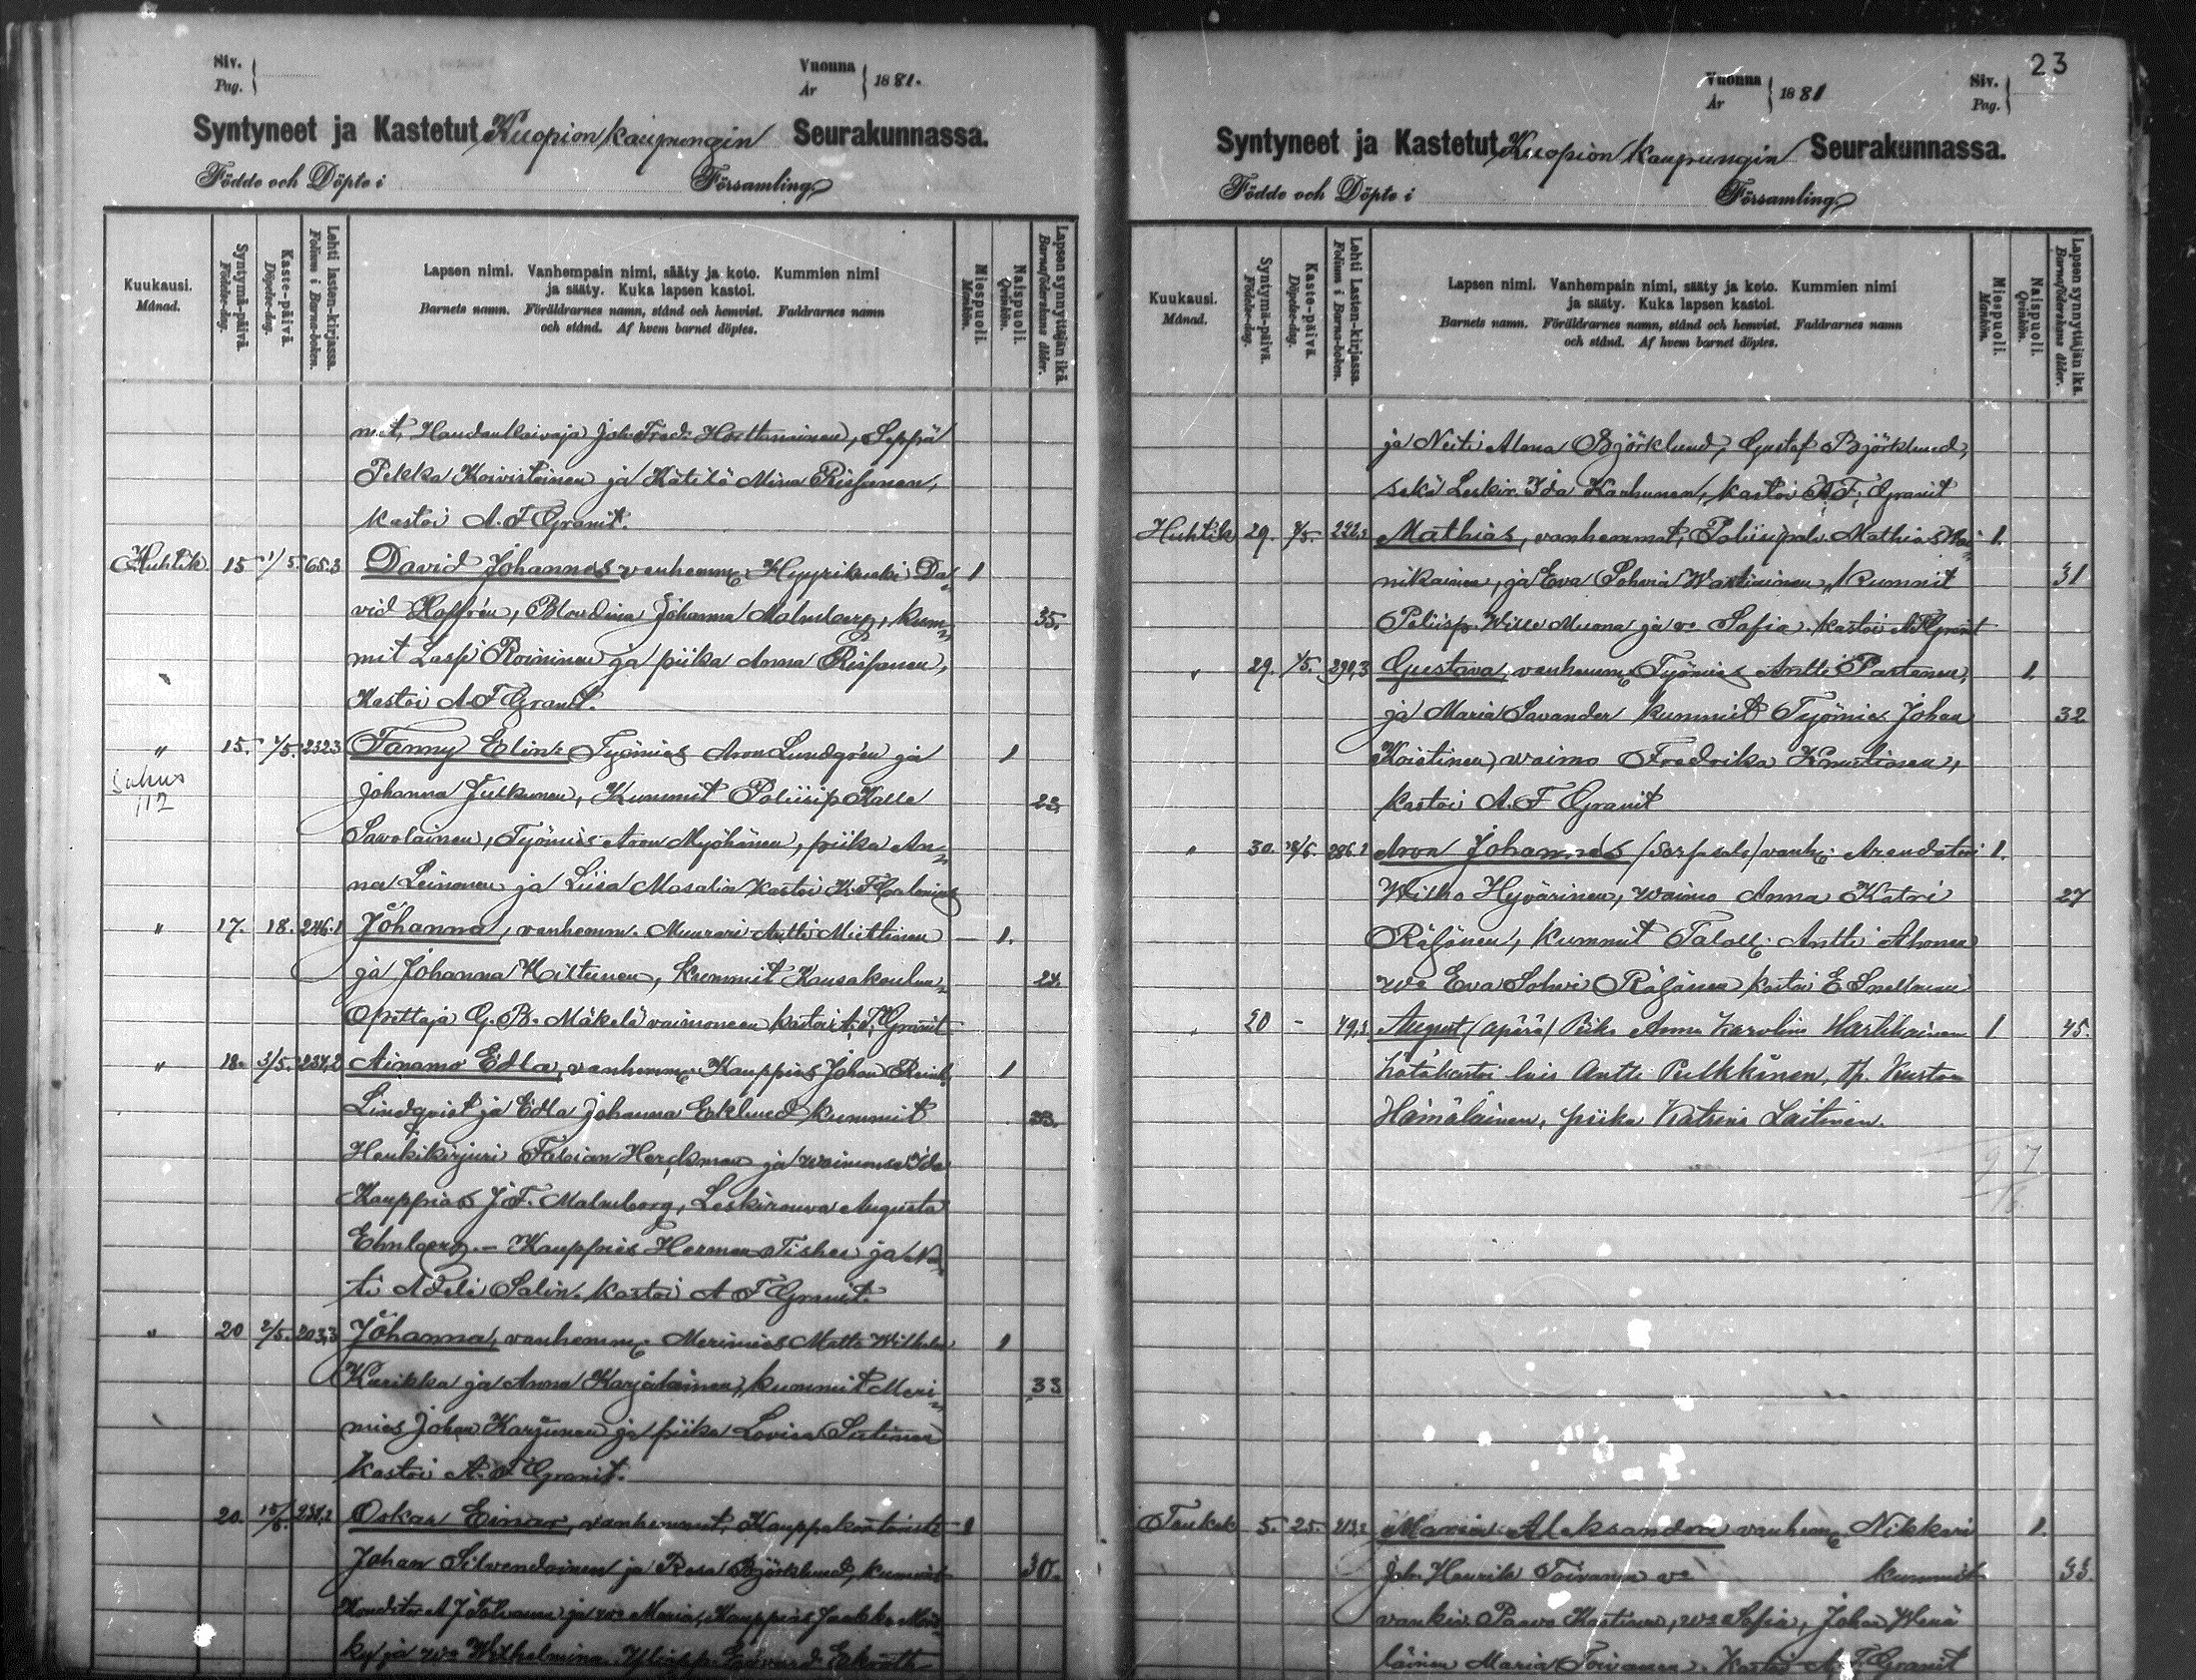 Siv.
Pag.
Vuonna
År
1881.
Syntyneet ja Kastetut Kuopion kaupungin Seurakunnassa.
Födde och Döpte i Församling
Kuukausi.
Månad.
Syntymä-päivä.
Födelse-dag.
Kaste-päivä.
Döpelse-dag.
Lehti lasten-kirjassa.
Folium i Barna-boken.
Lapsen nimi. Vanhempain nimi, sääty ja koto. Kummien nimi
ja sääty. Kuka lapsen kastoi.
Barnets namn. Föräldrarnes namn, stånd och hemvist. Faddrarnes namn
och stånd. Af hvem barnet döptes.
Miespuoli.
Mankön.
Naispuoli.
Qvinkön.
Lapsen synnyttäjän ikä.
Barnaföderskans ålder.
mit, Haudankaivaja Joh. Fred. Horttanainen, Seppä
Pekka Koivistoinen ja Kätilö Mina Rissanen,
kastoi A. F Granit.
Huhtik. 15 1/5. 65.3 David Johannes vanhemm: David 1
vid Hoffrén, Blondina Johanna Malmberg, kum- 35.
mit Roininen ja piika Anna Rissanen,
Kastoi A. F Granit.
" 15. 1/5. 232.3 Fanny Elin Työmies Aron Lundgrén ja 1
Johanna Julkunen, Kummit Poliisip Kalle 23.
112
Savolainen, Työmies Aron Myöhänen, piika An-
na Leinonen ja Liisa Mosalin kastoi
" 17. 18. 246.1 Johanna, vanhemm. Muurari Antti Miettinen 1.
ja Johanna Kiltunen, Kummit Kansakoulun 24.
Opettaja G. B. Mäkelä vaimoneen kastoi A. F. Granit
" 18. 3/5. 237,2 Ainamo Edla, vanhemm: Kauppias Johan Reinh. 1
Lindqvist ja Edla Johanna Eklund kummit 33.
Henkikirjuri Fabian Herckman ja waimonsa Ida
Kauppias J. F. Malmberg, Leskirouwa Augusta
Ehnberg. – Kauppias Herman Fisher ja N
ti Adele Salin. kastoi A F Granit.
" 20 2/5. 203,3 Johanna, vanhemm: Merimies Matts Wilhelm 1
Kurikka ja Anna Karjalainen, kummit Meri- 33
mies Johan Karjunen ja piika Lovisa Sutinen
Kastoi A. F Granit.
20. 15/6. 231,2 Oskar Einar, vanhemmat, Kauppakontoristi 1
Johan Silvendoinen ja Rosa Björklund, kummit 30.
Konditor A J Tolvanen ja wo Maria, Kauppias Jaakko
ky ja wo Wilhelmina
23
Vuonna
År
1881
Siv.
Pag.
Syntyneet ja Kastetut Kuopion kaupungin Seurakunnassa.
Födde och Döpte i Församling
Kuukausi.
Månad.
Syntymä-päivä.
Födelse-dag.
Kaste-päivä.
Döpelse-dag.
Lehti Lasten-kirjassa.
Folium i Barna-boken.
Lapsen nimi. Vanhempain nimi, sääty ja koto. Kummien nimi
ja sääty. Kuka lapsen kastoi.
Barnets namn. Föräldrarnes namn, stånd och hemvist. Faddrarnes namn
och stånd. Af hvem barnet döptes.
Miespuoli.
Mankön.
Naispuoli.
Qvinkön.
Lapsen synnyttäjän ikä.
Barnaföderskans ålder.
ja Neiti Alma Björklund, Gustaf Björklund,
sekä Leskir. Ida Karhunen, kastoi A. F. Granit
Huhtik 29. 222,2 Mathias, vanhemmat, Poliisipalv. Mathias 1.
nikainen, ja Eva Sohvia Wartiainen, Kummit 31
Poliisp. Wille Muona ja vo Sofia. kastoi A F Granit
" 29. 1/5. 291,3 Gustava, vanhemm: Työmies Antti Partanen, 1.
ja Maria Savander kummit Työmies Johan 32
Koistinen, waimo Fredrika
kastoi A. F Granit
" 30. 286.2 Aron Johannes vanh: Arendatori 1.
Wilho Hyvärinen, waimo Anna Katri 27
Räsänen, kummit Taloll: Antti Ahonen
wo Eva Sohvi Räsänen kastoi E Snellman
" 20 - 49,2 August (äpärä) Piika Anna Karolina Hartikainen 1. 45.
hätäkastoi Antti Pulkkinen,
Hämäläinen, piika Katrina Laitinen.
9 7
Toukok 5. 25. 213,2 Maria Aleksandra vanhem: Nikkari 1.
Joh. Henrik Toivanen vo kummit 33.
Paavo wo Sofia, Johan
läinen Maria Toivanen. Kastoi A. F Granit